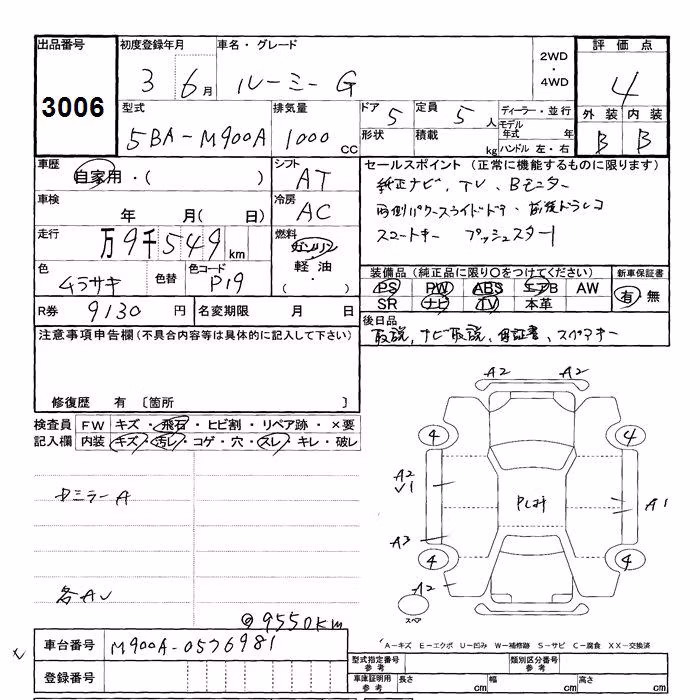 出品番号 初度登録年月 車名・グレード 評価点
3006 3 6月 ルーミー G 2WD ・ 4WD 4
型式 排気量 ドア 5 定員 5 人 ディーラー・並行 外装 内装
5BA-M900A 1000 CC 形状 積載 kg モデル年式 年 B B
ハンドル 左・右
車歴 自家用・( ) シフト AT セールスポイント (正常に機能するものに限ります)
車検 年 月(日) 冷房 AC 純正ナビ、TV、Bモニター
両側パワースライドドア、前後ドラレコ
走行 万9千549km 燃料 ガソリン 軽油 ・( ) スマートキー プッシュスタート
色 ムラサキ 色替 色コード P19 装備品 (純正品に限り〇をつけてください) 新車保証書
PS PW ABS エアB AW 有・無
SR ナビ TV 本革
R券 9130 円 名変期限 月 日 後日品
取説、ナビ取説、保証書、スペアキー
注意事項申告欄(不具合内容等は具体的に記入して下さい)
修復歴 有 〔箇所 〕
検査員 FW キズ・飛石・ヒビ割・リペア跡・×要
記入欄 内装 キズ・汚レ・コゲ・穴・スレ・キレ・破レ
A2 A2
4 4
A2
√1
ミラーA PLオ A1
A3
4 4
A2
各AU
スペア
@9550km
車台番号 M900A-0576981
A-キズ E-エクボ U-凹み W-補修跡 S-サビ C-腐食 XX-交換済
登録番号
型式指定番号 参考 類別区分番号 参考
車庫証明用 参考 長さ cm 幅 cm 高さ cm